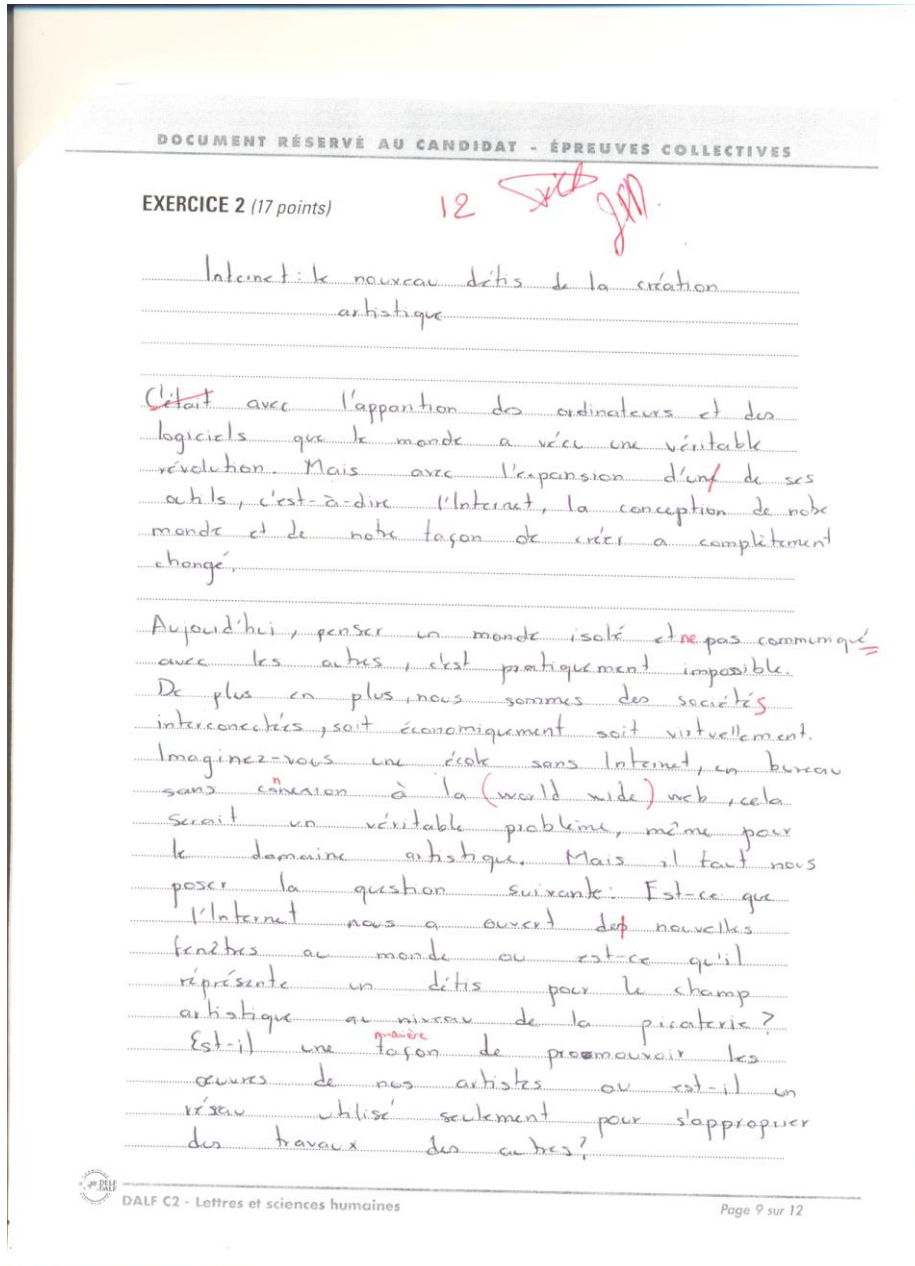 DOCUMENT RÉSERVÉ AU CANDIDAT - ÉPREUVES COLLECTIVES
EXERCICE 2 (17 points)
12
Internet: le nouveau défis de la création
artistique
C'était avec l'apparition des ordinateurs et des
logiciels que le monde a vécu une véritable
révolution. Mais avec l'expansion d'un de ses
outils, c'est-à-dire l'Internet, la conception de notre
monde et de notre façon de créer a complètement
changé.
Aujourd'hui, penser un monde isolé et ne pas communiqué
avec les autres, c'est pratiquement impossible.
De plus en plus, nous sommes des sociétés
interconectées, soit économiquement soit virtuellement.
Imaginez-vous une école sans Internet, un bureau
sans connexion à la (world wide) web, cela
serait un véritable problème, même pour
le domaine artistique. Mais il faut nous
poser la question suivante: Est-ce que
l'Internet nous a ouvert des nouvelles
fenêtres au monde ou est-ce qu'il
réprésente un défis pour le champ
artistique au niveau de la piraterie?
Est-il une façon manière de promouvoir les
œuvres de nos artistes ou est-il un
réseau utilisé seulement pour s'approprier
des travaux des autres?
DELF DALF
DALF C2 - Lettres et sciences humaines
Page 9 sur 12